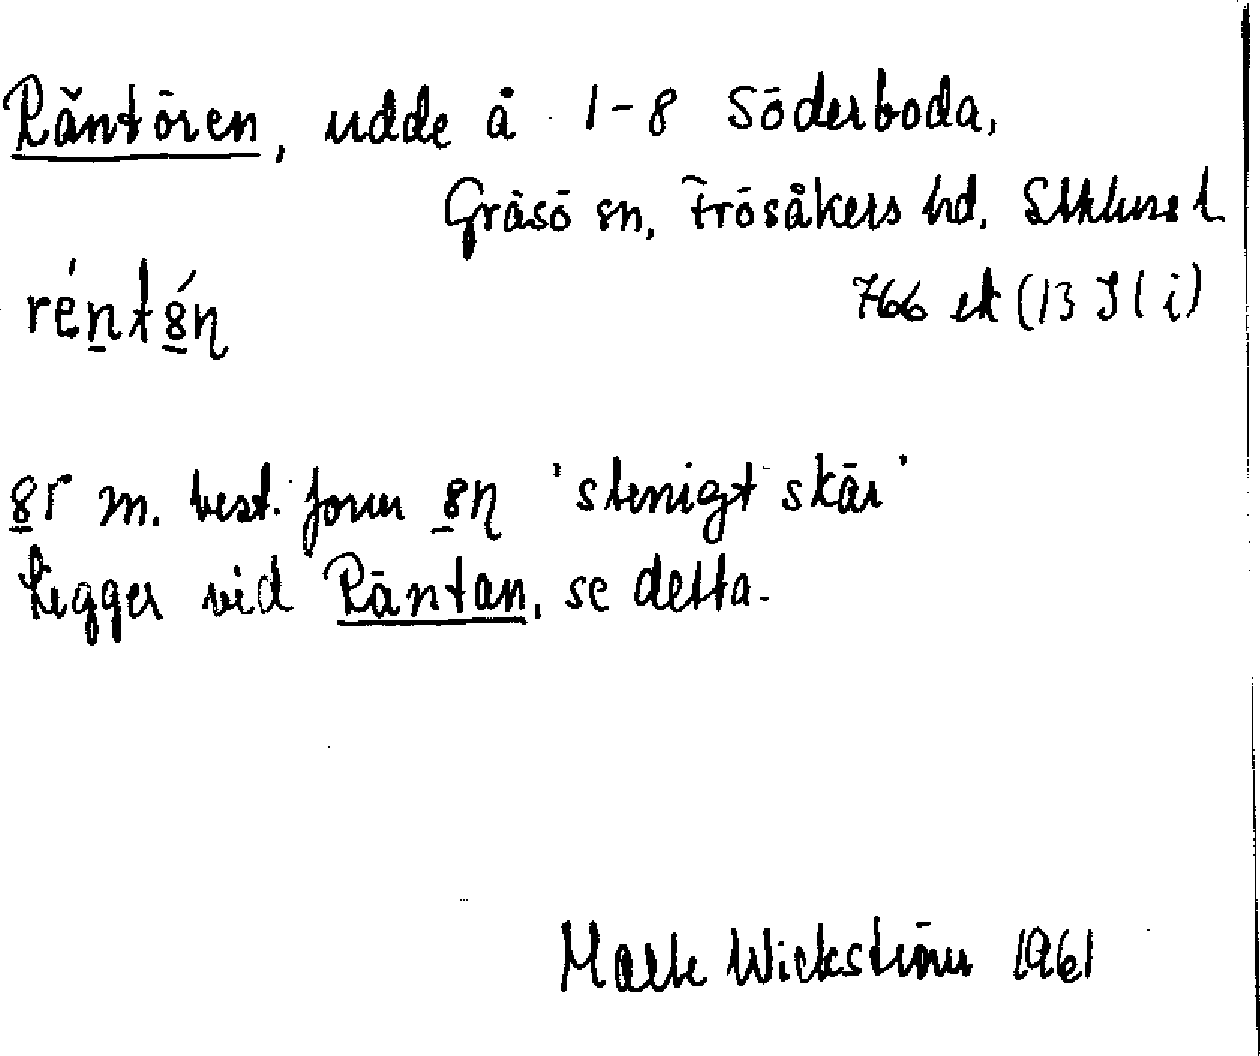 Räntören, udde å 1-8 Söderboda,
Gräsö sn, Frösåkers hd. Sthlms l.
réntȣ́n
766 ek (13 I 1 i)
ȣr m. best. form ȣn 'stenigt skär'
Ligger vid Räntan, se detta.
Malte Wickström 1961